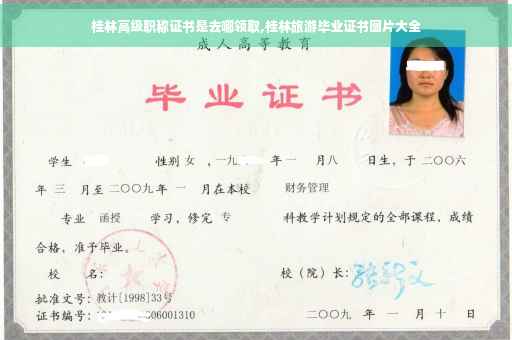 桂林高级职称证书是去哪领取,桂林旅游毕业证书图片大全
成人高等教育
毕业证书
学生 性别 女 ，一九 年 一 月 八 日生，于 二〇〇六
年 三 月至 二〇〇九 年 一 月在本校 财务管理
专业 函授 学习，修完 专 科教学计划规定的全部课程，成绩
合格，准予毕业。
校 名： 校（院）长：
批准文号：教计[1998]33号
证书编号： 006001310 二〇〇九 年 一 月 十 日